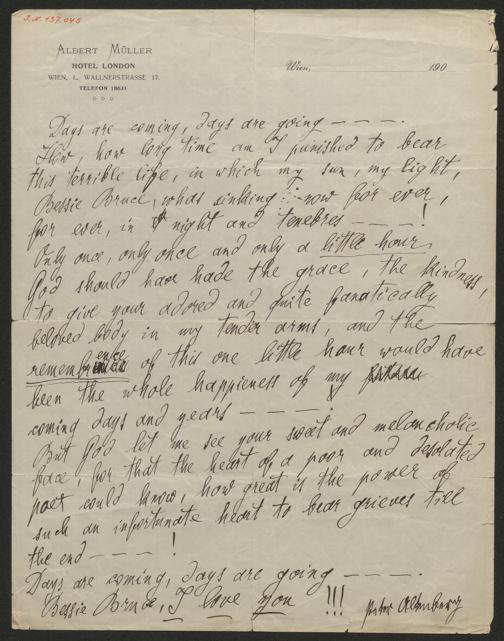 J.N. 137.045
ALBERT MÜLLER
HOTEL LONDON
WIEN, I., WALLNERSTRASSE 17.
TELEFON 18631
Wien, 190
Days are coming, days are going — — — .
How, how long time am I punished to bear
this terrible life, in which my sun, my light,
Bessie Bruce, whas sinking : now for ever,
for ever, in night and tenebres — — — !
Only once, only once and only a little hour
God should have hade the grace, the kindness,
to give your adored and quite fanatically
beloved body in my tender arms, and the
remembrence of this one little hour would have
been the whole happieness of my
coming days and years — — — — .
But God let me see your sweet and melancholic
face, for that the heart of a poor and desolated
poet could know, how great is the power of
such an infortunate heart to bear grieves till
the end — — — !
Days are coming, days are going — — — — .
Bessie Bruce, I love you !!! Peter Altenberg